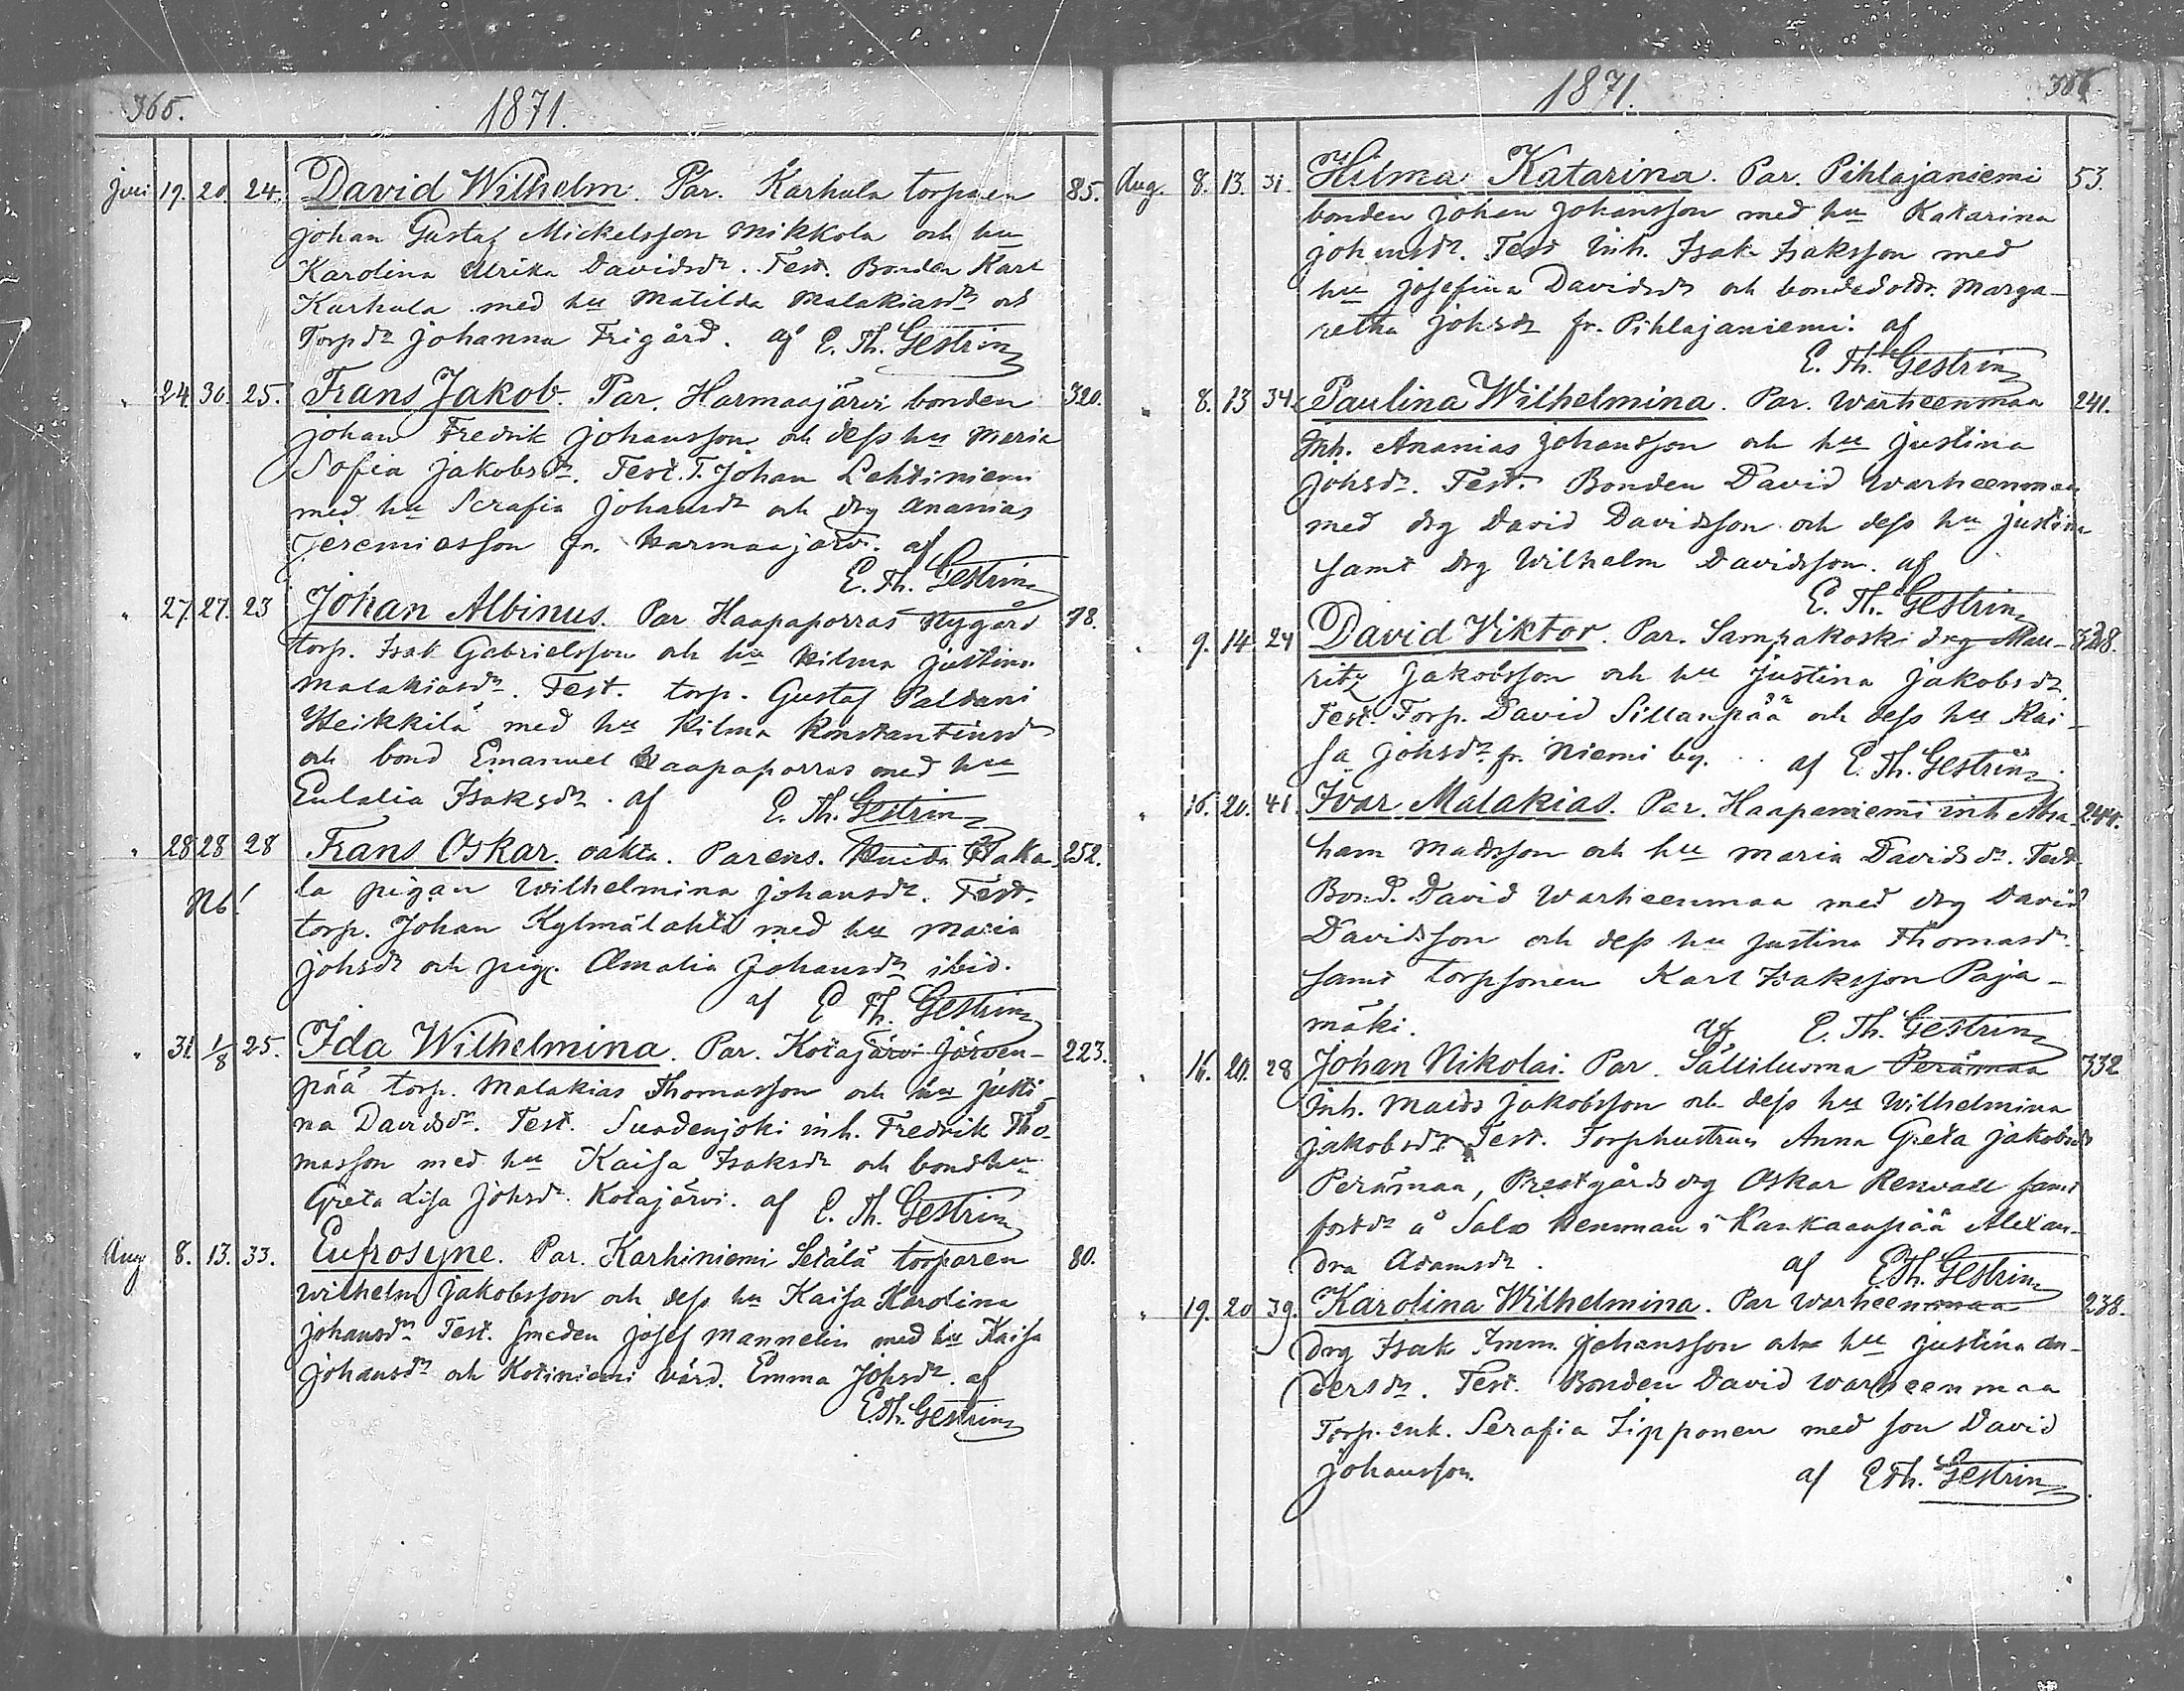 365.
1871.
Juli 19. 20. 24. David Wilhelm. Par. Karhula torparen 85.
Johan Gustaf Mickelsson Mikkola och hu
Karolina Ulrika Davidsdr. Test. Bonden Karl
Karhula med hu Matilda Malakiasdr och
Torpdr Johanna Frigård. af E. Th. Gestrin
" 24. 30. 25. Frans Jakob. Par. Harmaajärvi bonden 320.
Johan Fredrik Johansson och dess hu Maria
Sofia Jakobsdr. Test. T. Johan Lehtiniemi
med hu Serafia Johansdr och drg Ananias
Jeremiasson fr. Harmaajärvi. af
E. Th. Gestrin
" 27. 27. 23 Johan Albinus. Par Haapaporras Nygård 78.
torp. Isak Gabrielsson och hu Hilma Justina
Malakiasdr. Test. torp. Gustaf Paldani
Heikkilä med hu Hilma Konstantinsdr
och bond Emanuel Haapaporras med hu
Eulalia Isaksdr. af E. Th. Gestrin
" 28 28 28 Frans Oskar. oäkta. Parens. Haka- 252.
Nb! la pigan Wilhelmina Johansdr. Test.
torp. Johan Kylmälahti med hu Maria
Johsdr och pig. Amalia Johansdr ibid.
af E. Th. Gestrin
" 31 1/8 25. Ida Wilhelmina. Par. Kotajärvi Järven- 223.
pää torp. Malakias Thomasson och hu Justi-
na Davidsdr. Test. Suodenjoki inh. Fredrik Tho-
masson med hu Kaisa Isaksdr och bondhu
Greta Lisa Johsdr. Kotajärvi. af E. Th. Gestrin
Aug 8. 13. 33. Eufrosyne. Par. Karhiniemi Setälä torparen 80.
Wilhelm Jakobsson och dess hu Kaisa Karolina
Johansdr Test. Smeden Josef Mannelin med hu Kaisa
Johansdr och Kotiniemi värd. Emma Johsdr. af
E. Th. Gestrin
1871.
366.
Aug. 8. 13. 31. Hilma Katarina. Par. Pihlajaniemi 53.
bonden Johan Johansson med hu Katarina
Johansdr. Test Inh. Isak Isaksson med
hu Josefina Davidsdr och bondedottr. Marga-
retha Johsdr fr. Pihlajaniemi. af
E. Th. Gestrin
" 8. 13 34. Paulina Wilhelmina. Par. Warheenmaa 241.
Inh. Ananias Johansson och hu Justina
Johsdr. Test. Bonden David Warheenmaa
med drg David Davidsson och dess hu Justina
samt drg Wilhelm Davidsson. af
E. Th. Gestrin
" 9. 14 24 David Viktor. Par. Sampakoski drg Mau- 328.
ritz Jakobsson och hu Justina Jakobsdr
Test. Torp. David Sillanpää och dess hu Kai-
sa Johsdr fr. Niemi by. af E. Th. Gestrin
" 16. 20. 41. Ivar Malakias. Par. Haapaniemi inh Abra- 244.
ham Madsson och hu Maria Davidsdr. Test
Bond. David Warheenmaa med drg David
Davidsson och dess hu Justina Thomasdr.
samt torpsonen Karl Isaksson Paja-
mäki. af E. Th. Gestrin
" 16. 20. 28 Johan Nikolai. Par. Sällilusma Perämaa 332
Inh. Mats Jakobsson och dess hu Wilhelmina
Jakobsdr Test. Torphustrun Anna Greta Jakobsdr
Perämaa, Prestgårds drg Oskar Renvall samt
å Salo hemman i Kankaanpää Alexan-
dra Adamsdr. af E. Th. Gestrin
" 19. 20 39. Karolina Wilhelmina. Par Warheenmaa 238.
drg Isak Imm. Johansson och hu Justina An-
dersdr. Test. Bonden David Warheenmaa
Torp. enk. Serafia Sipponen med son David
Johansson. af E. Th. Gestrin